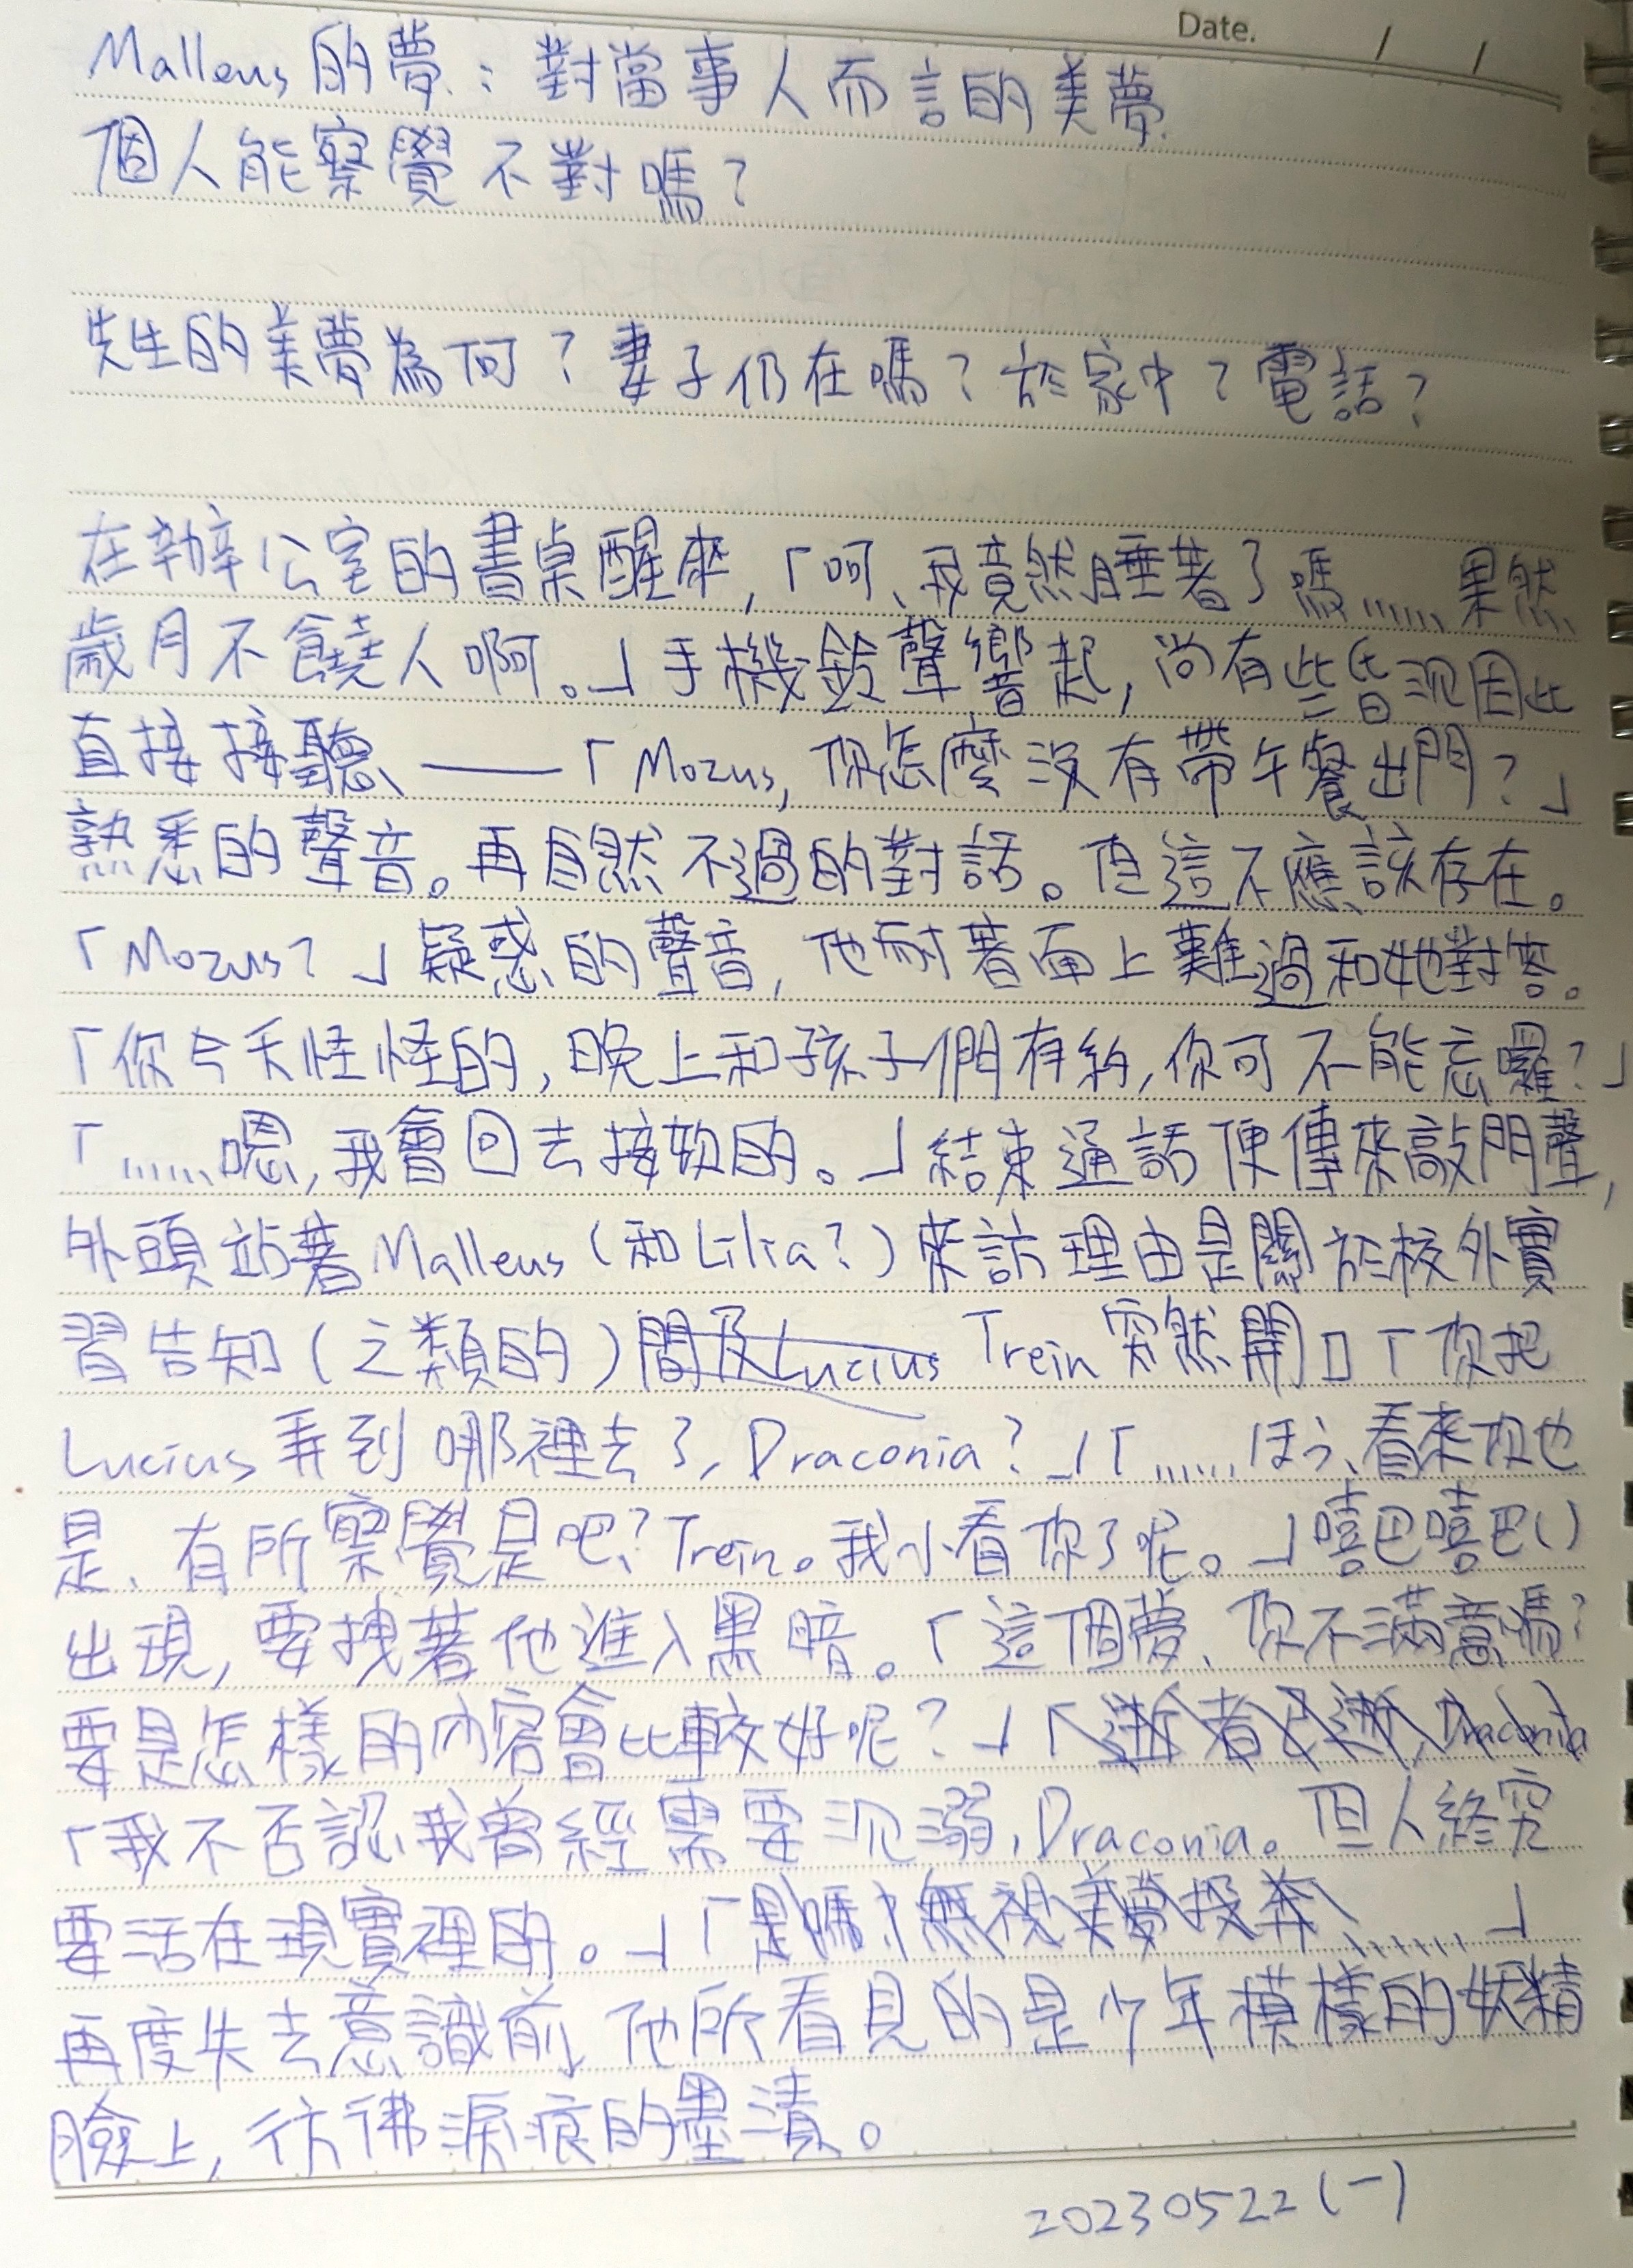 Date. / /
Malleus 的夢：對當事人而言的美夢
個人能察覺不對嗎？
先生的美夢為何？妻子仍在嗎？於家中？電話？
在辦公室的書桌醒來,「呵、我竟然睡著了嗎……果然
歲月不饒人啊。」手機鈴聲響起,尚有些昏沉因此
直接接聽、——「Mozus,你怎麼沒有帶午餐出門？」
熟悉的聲音。再自然不過的對話。但這不應該存在。
「Mozus？」疑惑的聲音,他耐著面上難過和她對答。
「你今天怪怪的,晚上和孩子們有約,你可不能忘囉？」
「……嗯,我會回去接妳的。」結束通話便傳來敲門聲,
外頭站著 Malleus（和 Lilia？）來訪理由是關於校外實
習告知（之類的）問及Lucius Trein 突然開口「你把
Lucius 弄到哪裡去了, Draconia？」「……ほう、看來你也
是、有所察覺是吧？Trein。我小看你了呢。」嘻巴嘻巴()
出現,要拽著他進入黑暗。「這個夢、你不滿意嗎？
要是怎樣的內容會比較好呢？」「逝者已逝, Draconia
「我不否認我曾經需要沉溺, Draconia。但人終究
要活在現實裡的。」「是嗎,無視美夢投奔、……」
再度失去意識前,他所看見的是少年模樣的妖精
臉上,彷彿淚痕的墨漬。
20230522(一)